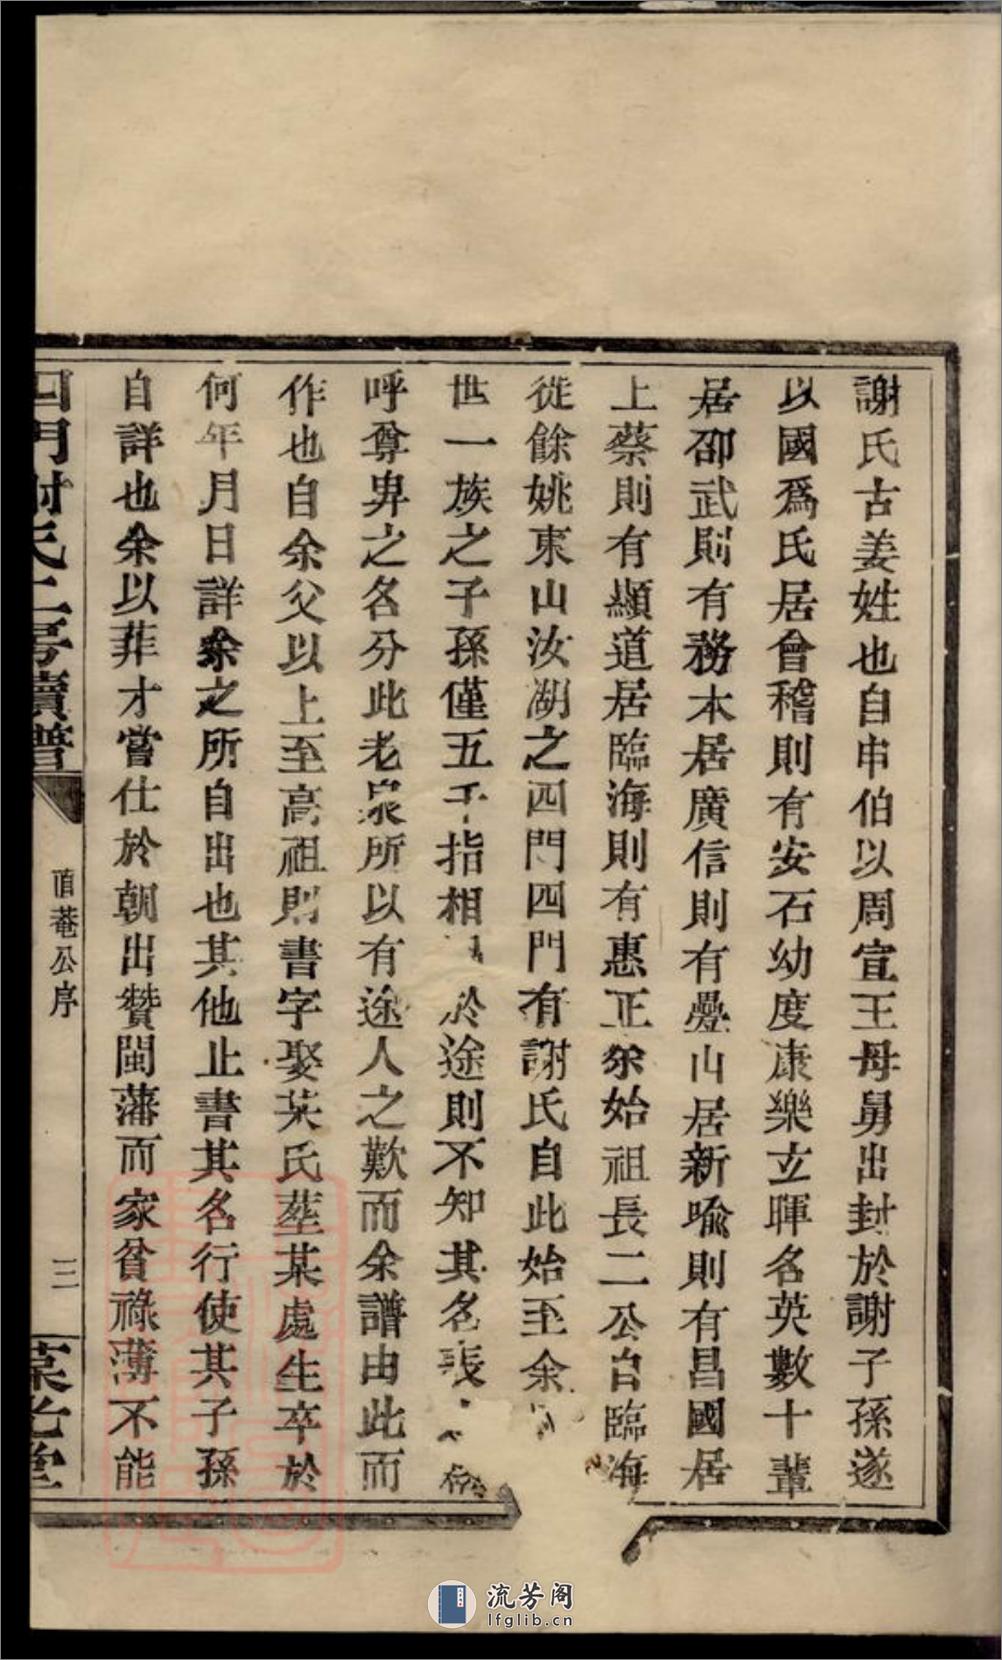 謝氏古姜姓也自申伯以周宣王母舅出封於謝子孫遂
以國爲氏居會稽則有安石幼度康樂玄暉名英數十輩
居邵武則有務本居廣信則有疊山居新喻則有昌國居
上蔡則有顯道居臨海則有惠正余始祖長二公自臨海
徙餘姚東山汝湖之四門四門有謝氏自此始至余
世一族之子孫僅五千指相於途則不知其名
呼尊卑之名分此老泉所以有途人之歎而余譜由此而
作也自余父以上至高祖則書字娶某氏塟某處生卒於
何年月日詳余之所自出也其他止書其名行使其子孫
自詳也余以菲才嘗仕於朝出贊閩藩而家貧祿薄不能
四門謝氏二房續譜
直菴公序
三
堂
流芳阁
lfglib.cn